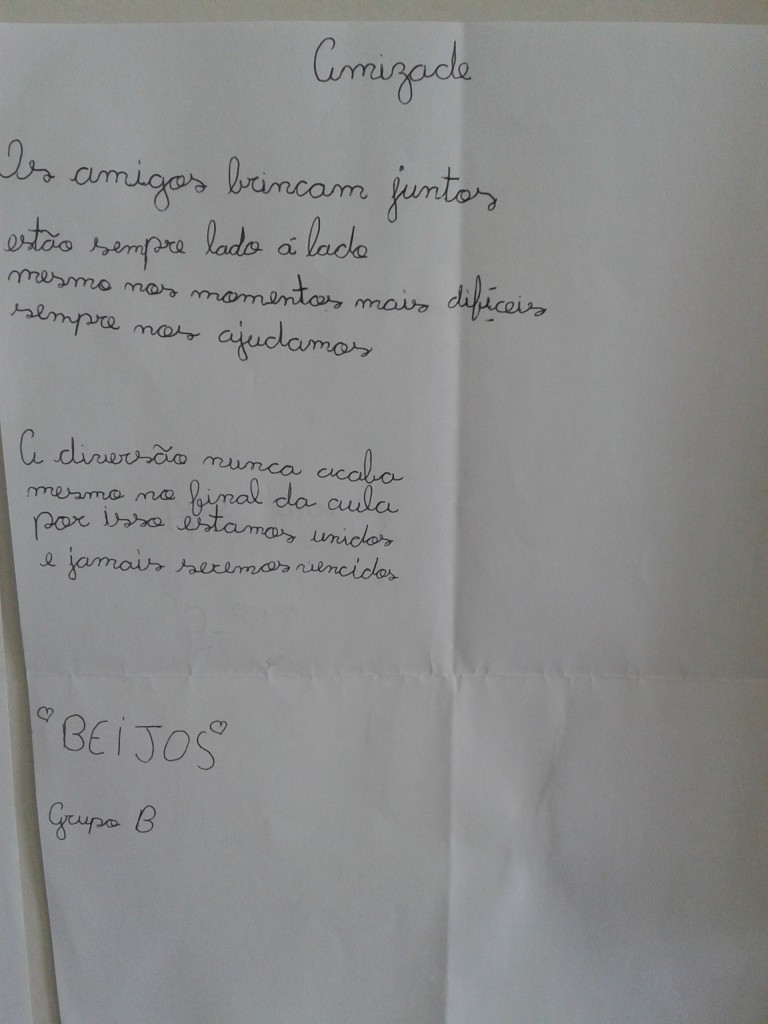 Amizade
Os amigos brincam juntos
estão sempre lado á lado
mesmo nos momentos mais difíçeis
sempre nos ajudamos
A diversão nunca acaba
mesmo no final da aula
por isso estamos unidos
e jamais seremos vencidos
♡BEIJOS♡
Grupo B